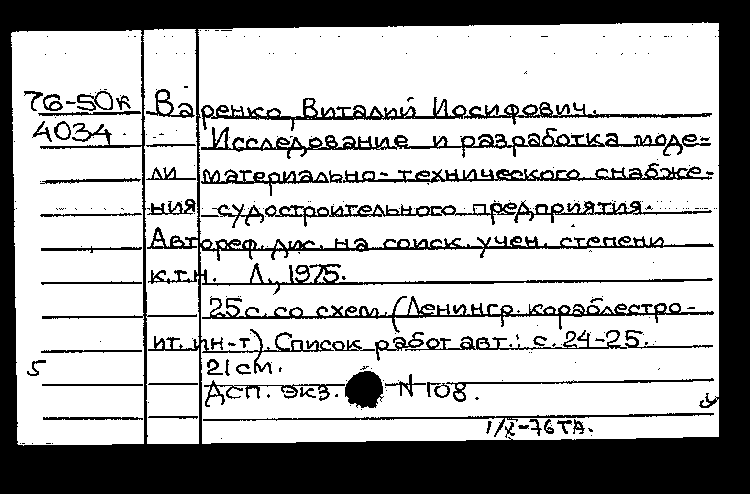 76-50к Варенко, Виталий Иосифович.
4034 Исследование и разработка моде-
ли материально-технического снабже-
ния судостроительного предприятия.
Автореф. дис. на соиск. учен. степени
к.т.н. Л., 1975.
25 с. со схем. (Ленингр. кораблестро-
ит. ин-т). Список работ авт.: с. 24-25.
5 21 см.
Дсп. экз. N 108.
1/X-76 ТА.